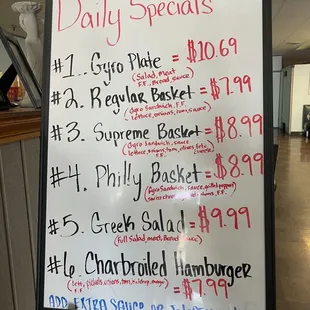 Daily Specials
#1. Gyro Plate = $10.69
(Salad, meat
F.F. Bread, sauce)
#2. Regular Basket = $7.99
(Gyro Sandwich, F.F.
lettuce, onions, tom, sauce)
#3. Supreme Basket = $8.99
(Gyro Sandwich, sauce
lettuce, onions, tom, olives, feta
F.F. cheese)
#4. Philly Basket = $8.99
(Gyro Sandwich, sauce, grilled peppers
onions, F.F.
#5. Greek Salad = $9.99
(Full Salad, meat, Bread, sauce)
#6. Charbroiled Hamburger
(lett, pickles, onions, tom, ketchup, mayo)
F.F.
= $7.99
ADD EXTRA SAUCE OR